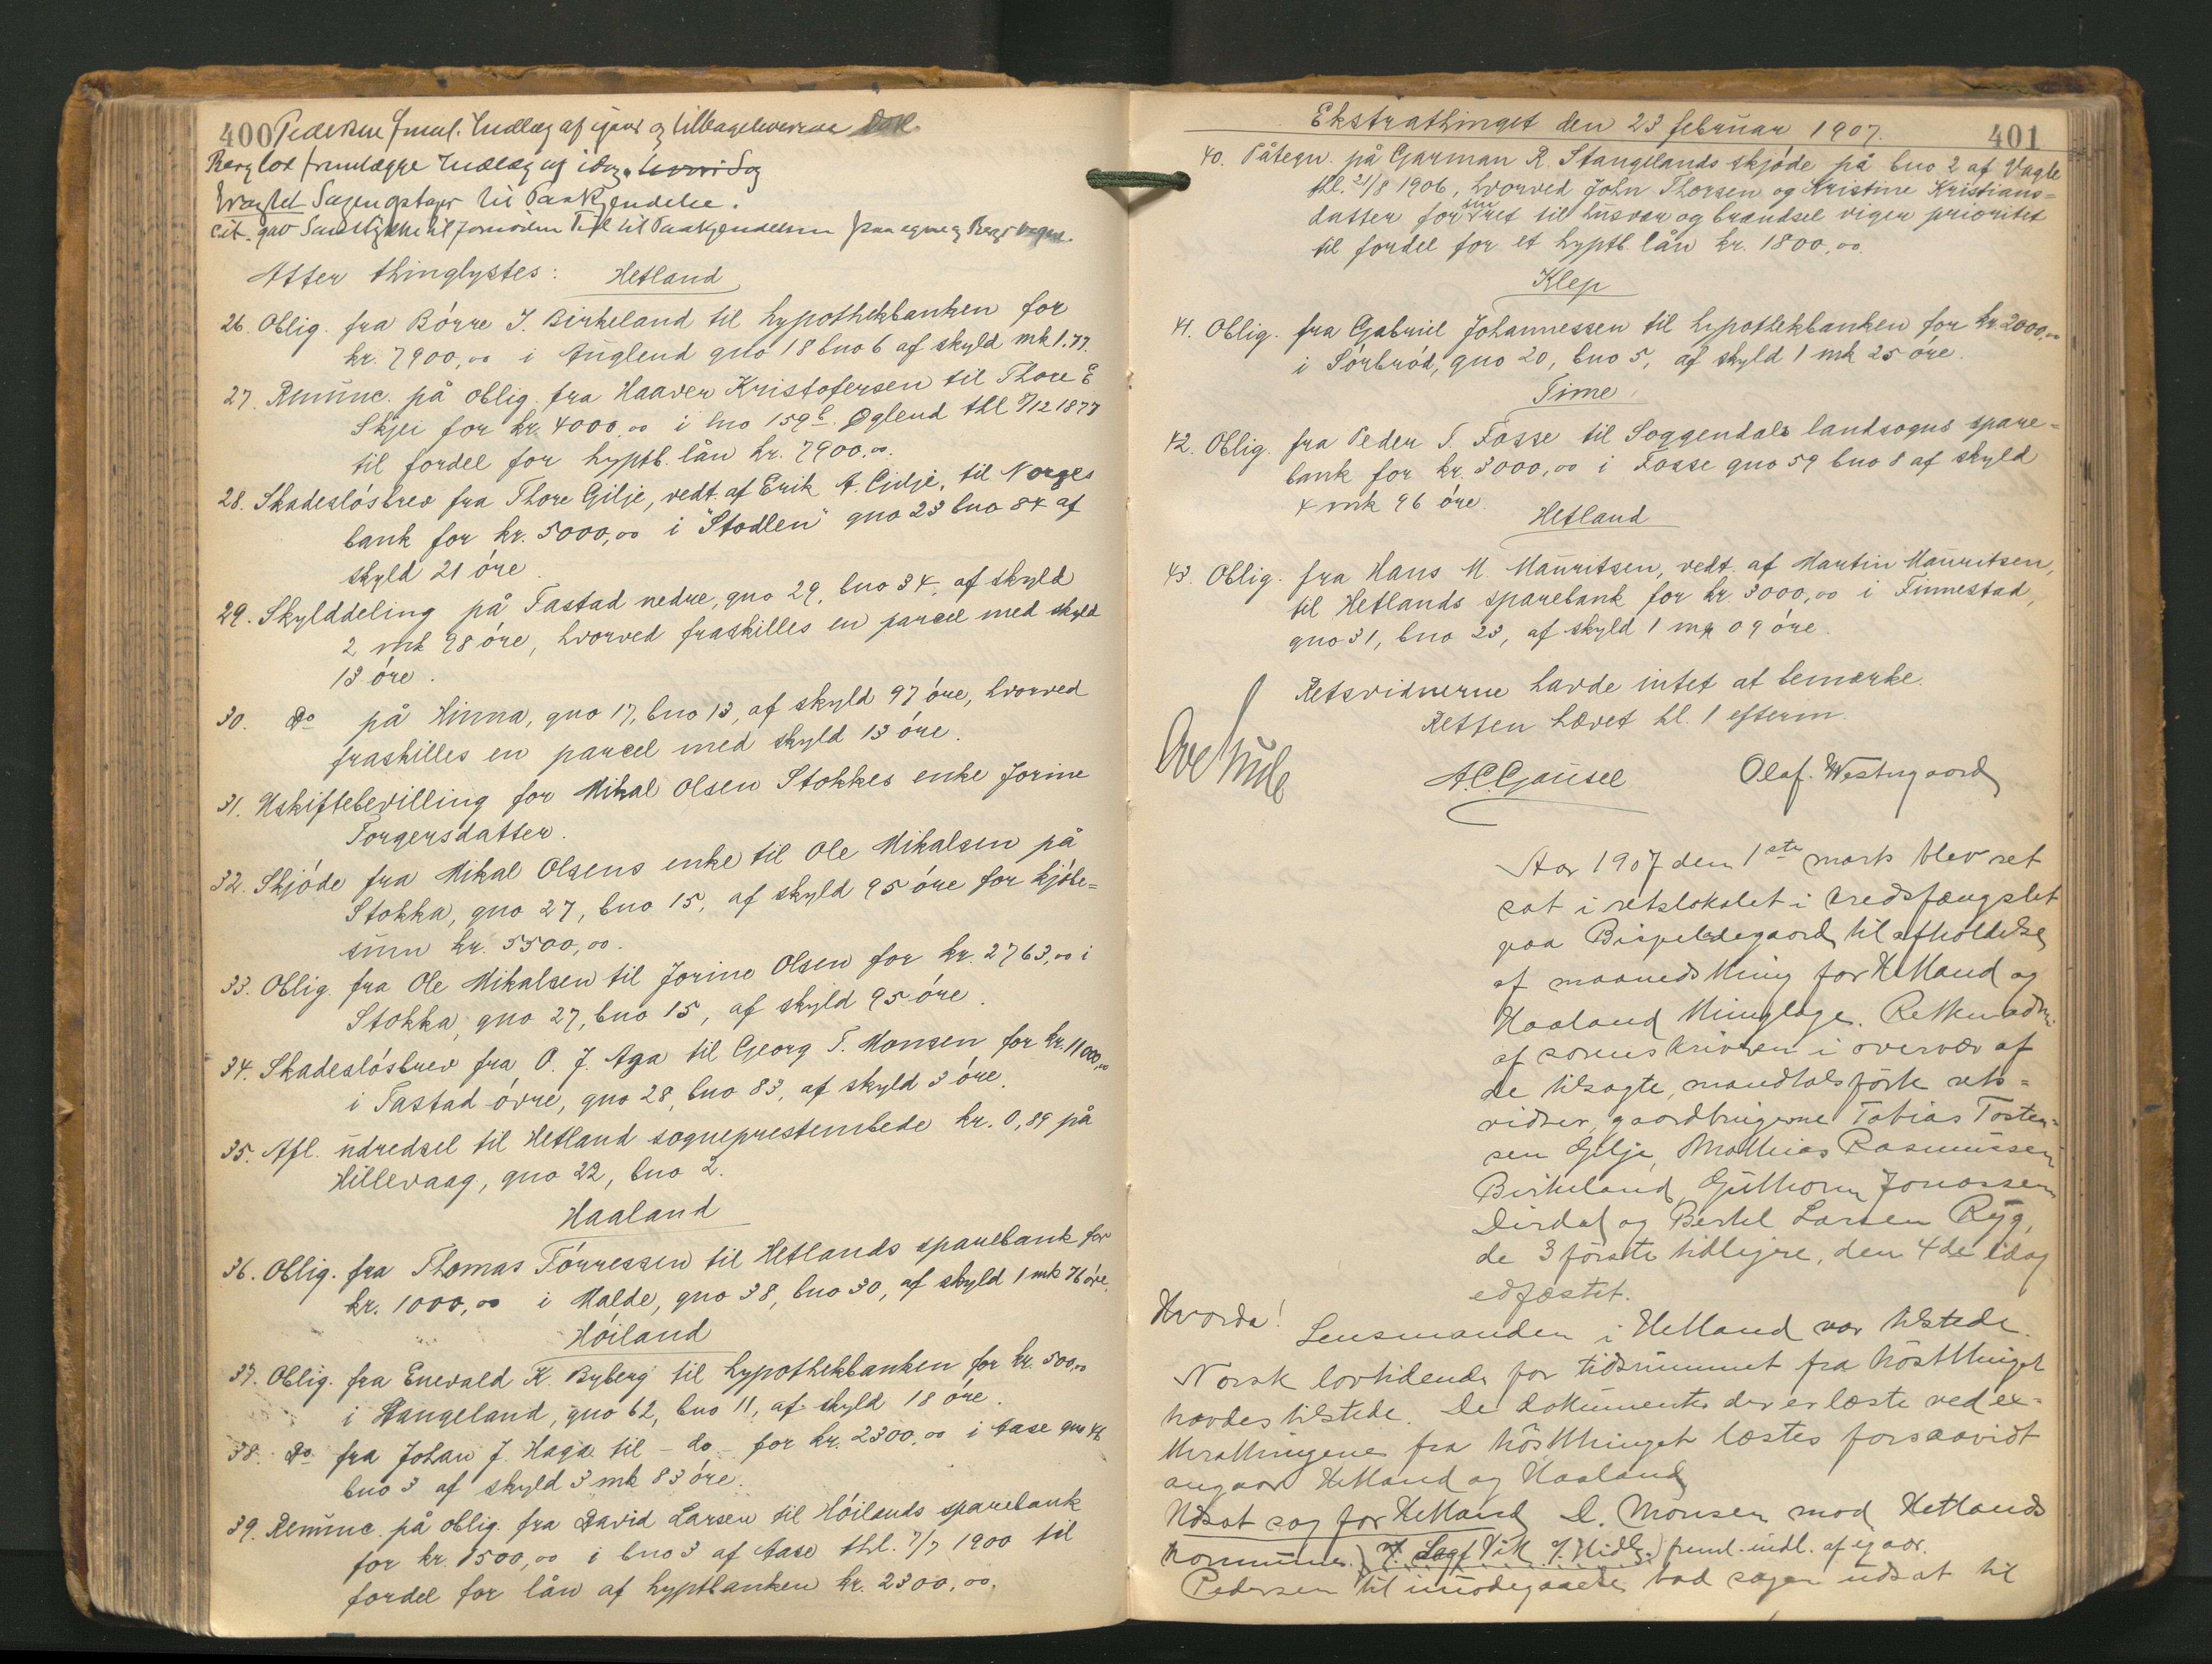 400 Pedersen freml. Indlæg af igaar og tilbageleverene Dok.
Berg lot fremlægge Indlæg af idag. Sag
Sagen optages til Paakjendelse.
Atter thinglystes: Hetland
26. Oblig. fra Börre J. Birkeland til hypothekbanken for
kr. 7900,00 i Auglend gno 18 bno 6 af skyld mk 1.77.
27. Renunc. på oblig. fra Haaver Kristofersen til Thore E
Skjei for kr. 4000,00 i lno 159 b Øglend thl 8/12 1877
til fordel for hyptb. lån kr. 7900.00.
28. Skadeslósbrev fra Thore Gilje, vedt. af Erik A. Gilje, til Norges
bank for kr. 5000,00 i "Stodlen" gno 23 bno 84 af
skyld 21 öre.
29. Skylddeling på Tastad nedre, gno 29, bno 34, af skyld
2 mk 98 öre, hvorved fraskilles en parcel med skyld
13 öre.
30. Do på Hinna, gno 17, bno 13, af skyld 97 öre, hvorved
fraskilles en parcel med skyld 13 öre.
31. Uskiftebevilling for Mikal Olsen Stokkes enke Jorine
Torgersdatter.
32. Skjóde fra Mikal Olsens enke til Ole Mikalsen på
Stokka, gno 27, bno 15, af skyld 95 öre for kjóbe=
sum kr. 5500,00.
33. Oblig. fra Ole Mikalsen til Jorine Olsen for kr. 2763,00 i
Stokka, gno 27, bno 15, af skyld 95 öre.
34. Skadeslósbrev fra O. J. Aga til Georg T. Monsen for kr. 11000,00
i Tastad óvre, gno 28, bno 83, af skyld 3 öre.
35. Afl. udredsel til Hetland sogneprestembede kr. 0,89 på
Hillevaag, gno 22, bno 2.
Haaland
36. Oblig. fra Thomas Tórressen til Hetlands sparebank for
kr. 1000,00 i Malde, gno 38, bno 30, af skyld 1 mk 76 öre.
Hóiland
37. Oblig. fra Enevald K. Byberg til hypothekbanken for kr. 500,00
i Hangeland, gno 62, bno 11, af skyld 18 öre.
38. Do fra Johan J. Haga til - do - for kr. 2300,00 i Aase gno 46
bno 3 af skyld 3 mk 83 öre.
39. Renunc. på oblig. fra David Larsen til Hóilands sparebank
for kr. 1500,00 i bno 3 af Aase thl. 7/7 1900 til
fordel for lån af hyptbanken kr. 2300,00.
Ekstrathinget den 23 februar 1907. 401
40. Påtegn. på Garman R. Stangelands skjóde på bno 2 af Vagle
thl. 21/8 1906, hvorved John Thorsen og Kristine Kristians=
datter for sin ret til husvær og brændsel viger prioritet
til fordel for et hyptb. lån kr. 1800,00.
Klep
41. Oblig. fra Gabriel Johannessen til hypothekbanken for kr. 2000,00
i Sórbród, gno 20, bno 5, af skyld 1 mk 25 öre.
Time
42. Oblig. fra Peder T. Fosse til Soggendals landsogns spare=
bank for kr. 3000,00 i Fosse gno 59 bno 8 af skyld
4 mk 96 öre.
Hetland
43. Oblig. fra Hans M. Mauritsen, vedt. af Martin Mauritsen,
til Hetlands sparebank for kr. 3000,00 i Finnestad,
gno 31, bno 23, af skyld 1 mk 09 öre.
Retsvidnerne havde intet at bemærke.
Retten hævet kl. 1 efterm.
A. C. Gausel Olaf. Westergaard
Aar 1907 den 1ste marts blev ret
sat i retslokalet i kredsfængslet
paa Bispeladegaard til afholdelse
af maanedsthing for Hetland og
Haaland thinglage. Retten adm.
af sorenskriveren i overvær af
de tilsagte, mandtalsförte rets=
vidner, gaardbrugerne Tobias Tosten=
sen Gilje, Mathias Rasmussen
Birkeland, Guthorm Jonassen
Dirdal og Bertel Larsen Ryg,
de 3 förste tidligere, den 4de idag
edfæstet.
Hvorda!
Lensmanden i Hetland var tilstede.
Norsk lovtidende for tidsrummet fra hóstthinget
havdes tilstede. De dokumenter der er læste ved ex=
thrathingene fra hóstthinget læstes forsaavidt
angaar Hetland og Haaland
Udsat sag for Hetland D. Monsen mod Hetlands
kommune. freml. indl. af igaar.
Pedersen til imödegaaelse bad sagen udsat til